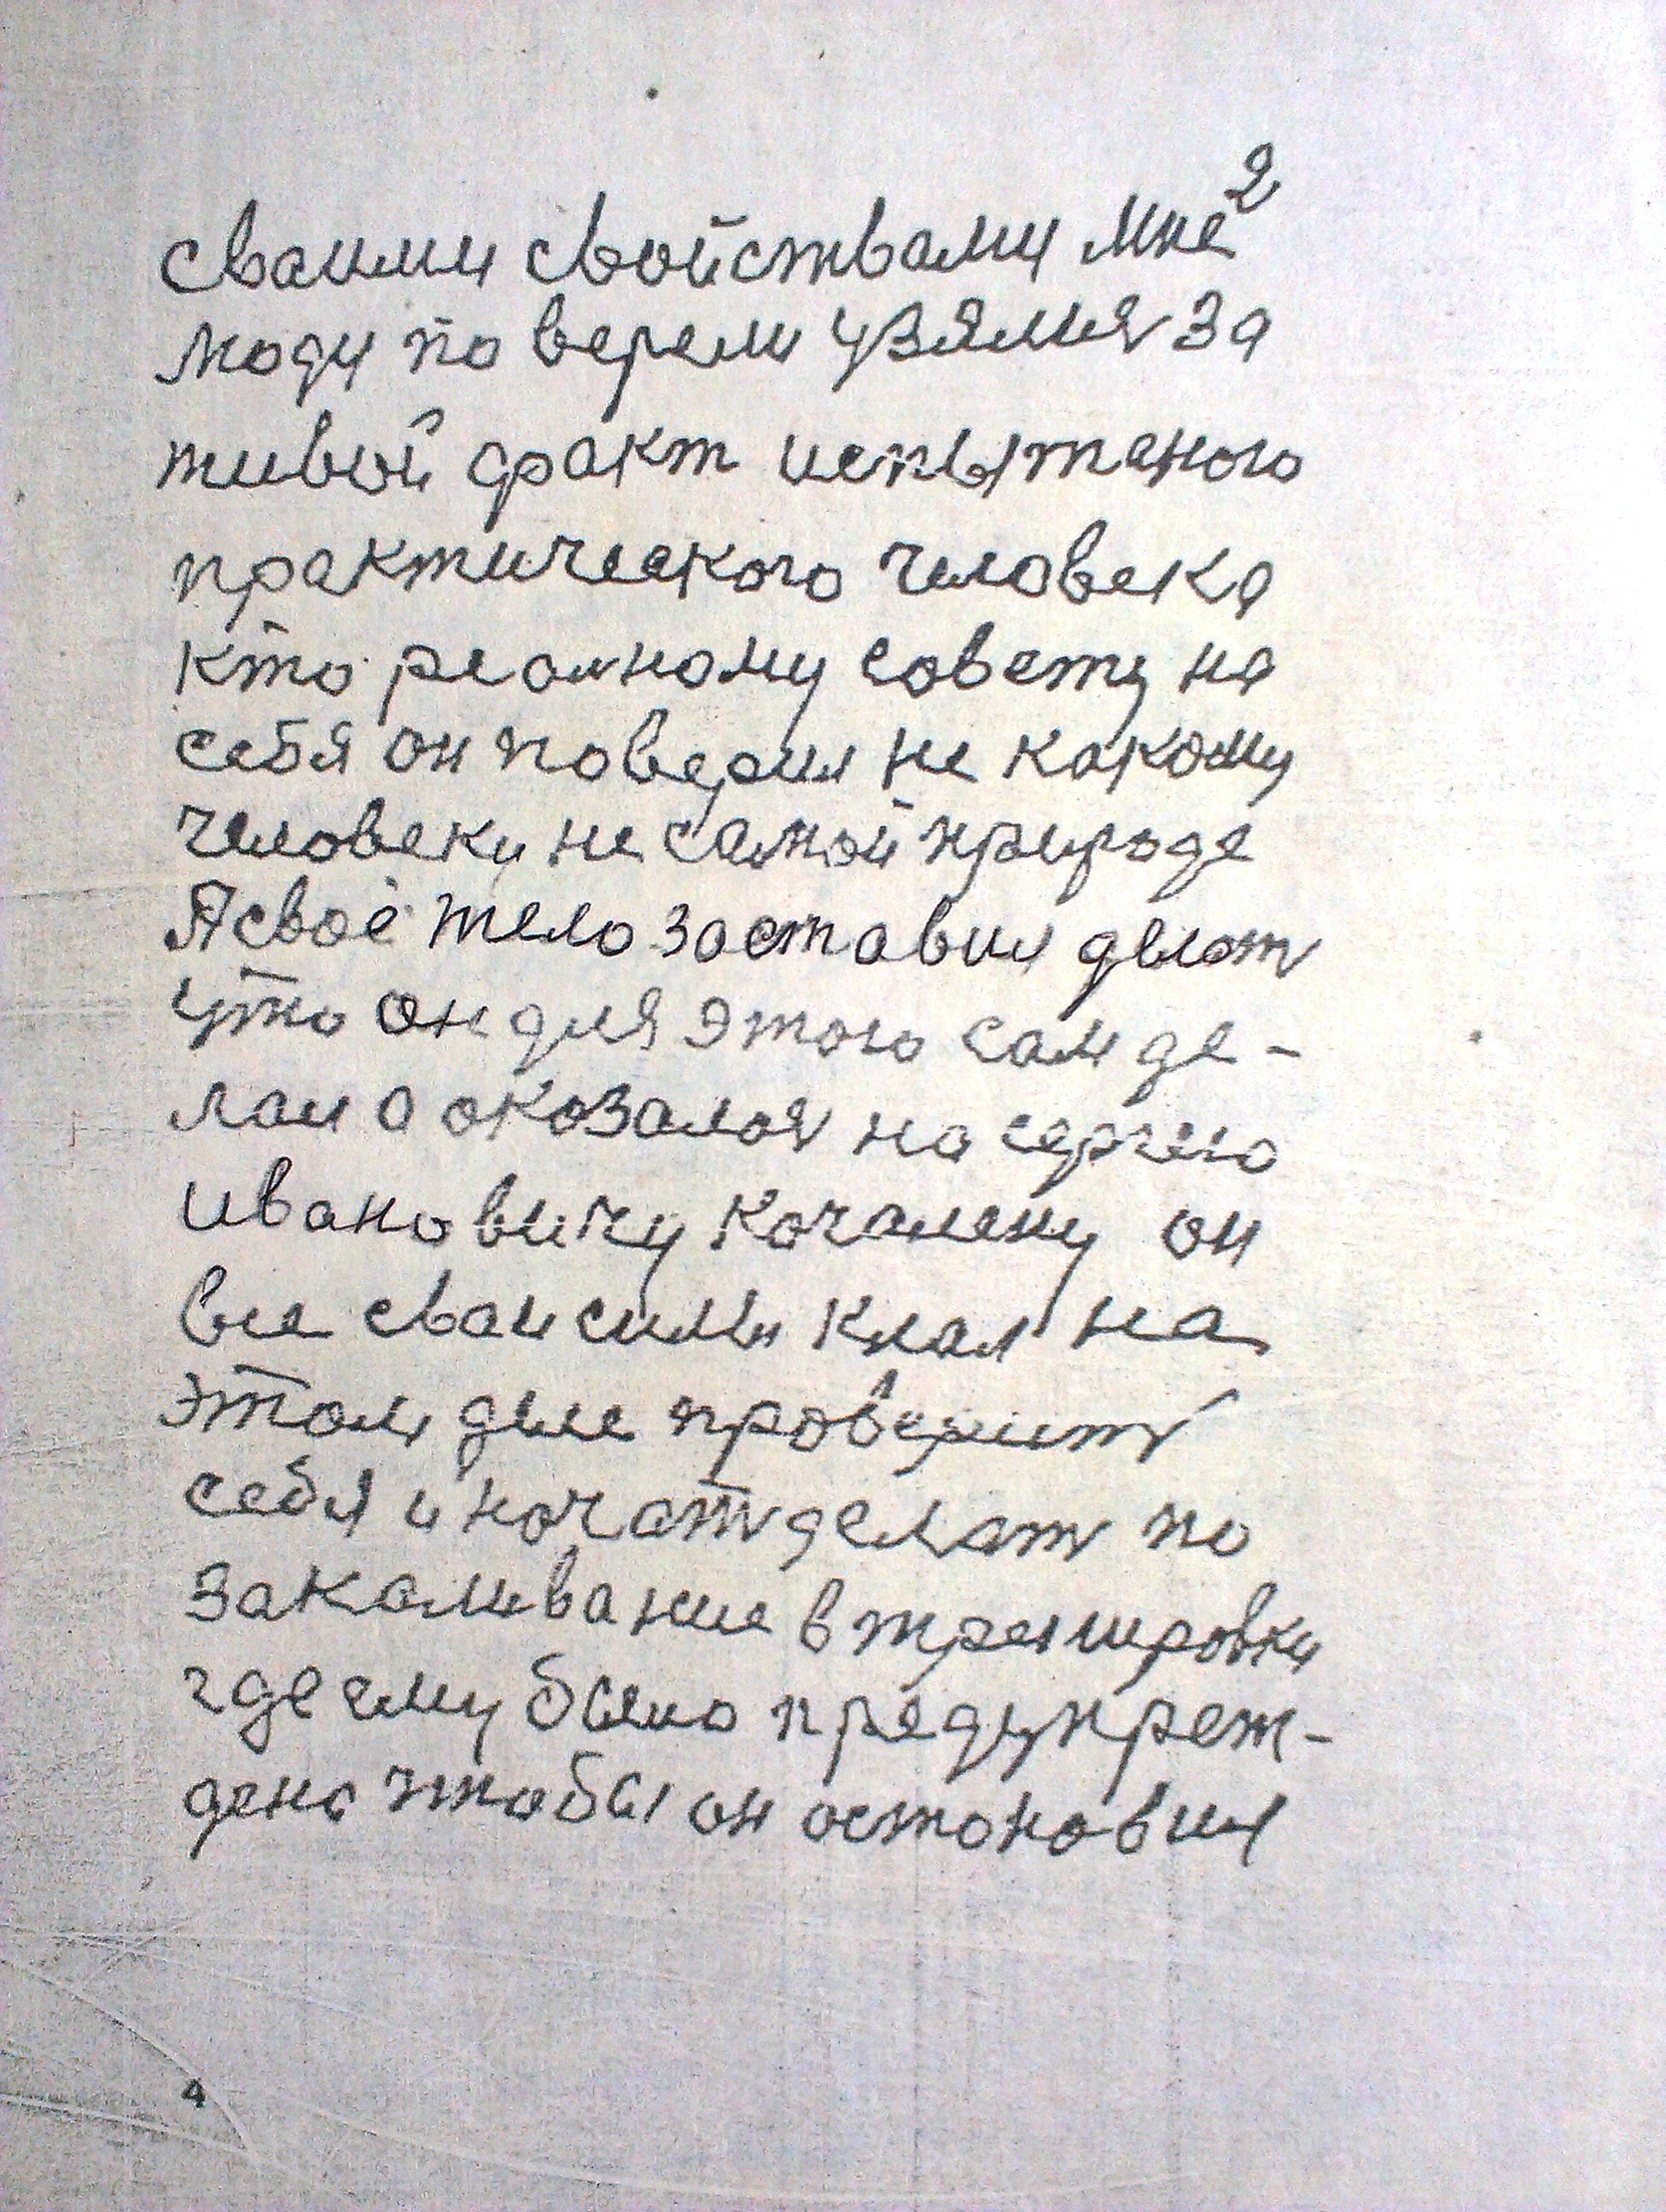 2
сваими свойствами мне
люди поверели узялися за
живой факт испытаного
практического человека
кто реалному совету на
себя он поверил не какому
человеку не самой природе
Я своё тело заставил делат
что он для этого сам де-
лал а оказалося на сергею
ивановичу Качалену он
все сваи силы клал на
этом деле проверить
себя и начать делать по
закаливание в тренировки
где ему было предупреж-
дено чтобы он остановил
4